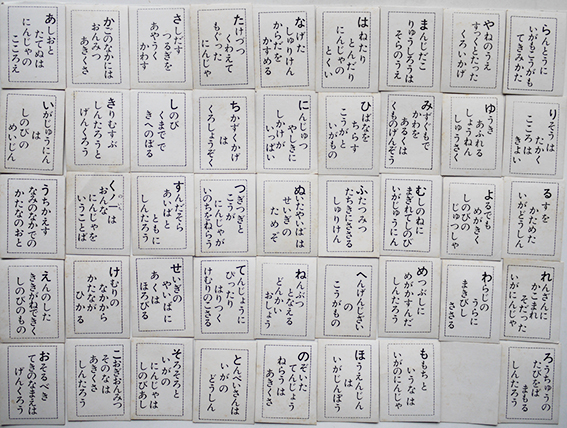 あしおと
たてぬは
にんじゃの
こころえ
いがじゅうにん
は
しのびの
めいじん
うちかえす
なみのなかでの
かたなのおと
えんのした
ききがねできく
しのびのもの
おそるべき
てきのなまえは
げんくろう
かごのなかには
おんみつ
あきくさ
きりむすぶ
しんたろうと
げんくろう
くノ一は
おんな
にんじゃを
いうことば
けむりの
なかから
かたなが
ひかる
こおぎおんみつ
そのなは
あきくさ
しんたろう
さしだす
つるぎを
あやうく
かわす
しのび
くまで
きへのぼる
すんだそら
あいばと
ともに
しんたろう
せいぎの
やいばに
あくは
ほろびる
そろそろと
いがの
にんじゃは
しのびあし
たけづつ
くわえて
もぐった
にんじゃ
ちかずくかげ
は
くろしょうぞく
つぎつぎと
こうが
にんじゃが
いのちをねらう
てんじょうに
ぴったり
はりつく
けむりのこざる
とんべいさんは
いがの
どうしん
なげた
しゅりけん
からだを
かすめる
にんじゅつ
やしきに
しかけが
いっぱい
ぬいたやいばは
せいぎの
ためぞ
ねんぶつ
となえる
どんかい
おしょう
のぞいた
てんじょう
ねらうは
あきくさ
はねたり
とんだり
にんじゃは
とくい
ひばなを
ちらす
こうがと
いがもの
ふたつみつ
たちきにささる
しゅりけん
へんげんじざい
の
こうがもの
ほうえんじ
は
いがじんぼう
まんじだこ
りゅうしろうは
そらのうえ
みずぐもで
かわを
あるくは
くものげんぞう
むしのねに
まぎれてしのび
いがにんじゃ
めつぶしに
めがかすんだ
しんたろう
ももちと
いうなは
いがのにんじゃ
やねのうえ
すっくとたった
くろいかげ
ゆうき
あふれる
しょうねん
しゅうさく
よるでも
めがきく
しのびの
じゅつしゃ
わらじの
うらに
まきびし
ささる
らんとうに
いがもこうがも
てきみかた
りそうは
たかく
こころは
きよい
るすを
かためた
いがどうしん
れんざんに
かこまれ
そだった
いがにんじゃ
ろうじゅうの
たびをば
まもる
しんたろう